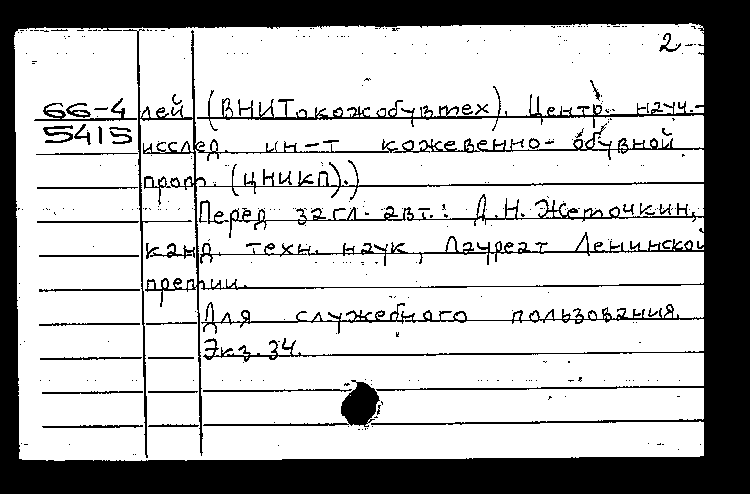 2
66-4 лей (ВНИТокожобувтех). Центр. науч.-
5415 исслед. ин-т кожевенно-обувной
пром. (ЦНИКП).)
Перед загл. авт.: Д.Н. Жемочкин,
канд. техн. наук, лауреат Ленинской
премии.
Для служебного пользования.
Экз. 34.